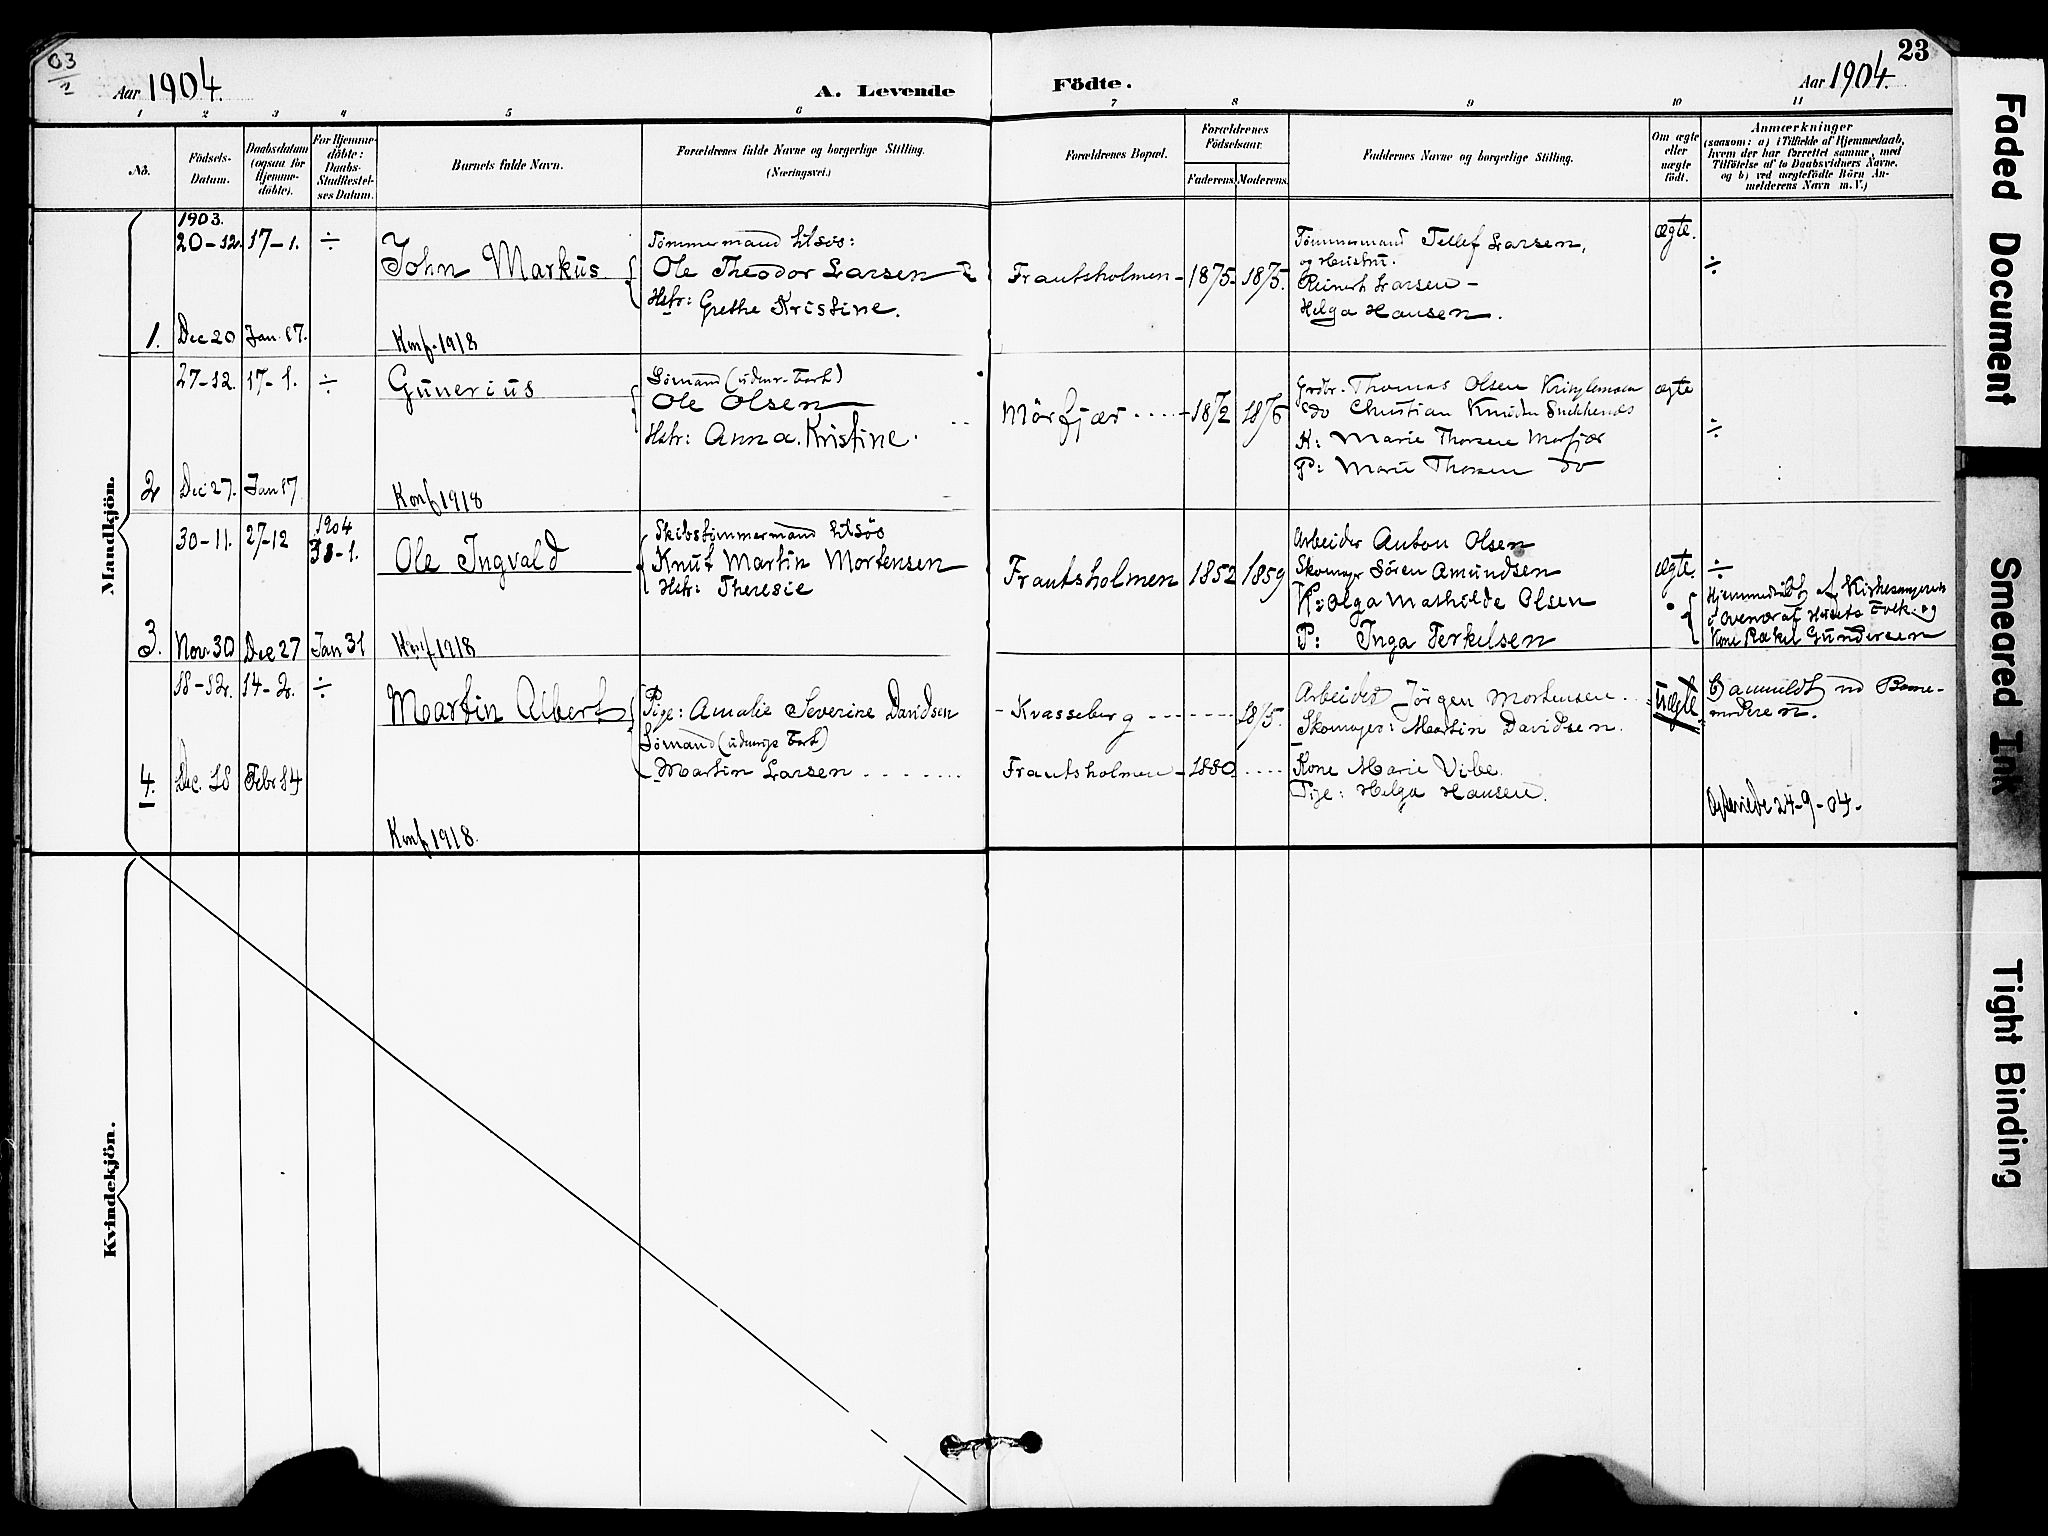 03
1
Aar 1904.
A. Levende
Födte.
Aar 1904.
23
1 2 3 4 5 6 7 8 9 10 11
No.
Födsels-
Datum.
Daabsdatum
(ogsaa for
Hjemme-
döbte).
For Hjemme-
döbte:
Daabs-
Stadfæstel-
ses Datum.
Barnets fulde Navn.
Forældrenes fulde Navne og borgerlige Stilling.
(Næringsvei.)
Forældrenes Bopæl.
Forældrenes
Födselsaar.
Faderens. Moderens.
Faddernes Navne og borgerlige Stilling.
Om ægte
eller
uægte
födt.
Anmærkninger
(saasom: a) i Tilfælde af Hjemmedaab,
hvem der har forrettet samme, med
Tilföielse af to Daabsvidners Navne.
og b) ved uægtefödte Börn An-
melderens Navn m. V.)
Mandkjön.
1903.
20-12. 17-1. ÷
John Markus
Tömmermand
Ole Theodor Larsen
Hstr: Grethe Kristine.
Frantsholmen - 1875. 1875.
Tömmermand Tellef Larsen,
og Hustru.
Reinert Larsen -
Helga Hansen.
ægte.
÷
1. Dec 20 Jan. 17.
Konf. 1918
27-12. 17-1. ÷
Gunerius
Sömand (udenr. Fart)
Ole Olsen
Hstr: Anna Kristine.
Mörfjær 1872 1876
Grdbr. Thomas Olsen
do Christian Knudsen
K: Marie Thorsen Morfjær
P: Marie Thorsen do
ægte
÷
2 Dec 27. Jan 17
Konf 1918
30-11. 27-12 1904
31-1.
Ole Ingvald
Skibstömmermand
Knut Martin Mortensen
Hstr: Theresie
Frantsholmen 1852 1859
Arbeider Anton Olsen
Skomager Sören Amundsen
K: Olga Mathilde Olsen
P: Inga Terkelsen
ægte.
÷
Hjemmedöbt af Kirkesangeren
i Overvær af Husets Folk og
Kone Rakel Gundersen
3. Nov. 30 Dec 27 Jan 31
Konf 1918
18-12. 14-2. ÷
Martin Albert
Pige: Amalie Severine Davidsen
Sömand (udenrigs Fart)
Martin Larsen
Kvasseberg 1875.
Frantsholmen - 1880
Arbeider Jörgen Mortensen
Skomager: Martin Davidsen.
Kone Marie Vibe.
Pige: Helga Hansen.
uægte
Barne-
moderen.
24-9-04.
4. Dec. 18 Febr 14
Konf 1918.
Kvindekjön.
Faded Document
Smeared Ink
Tight Binding